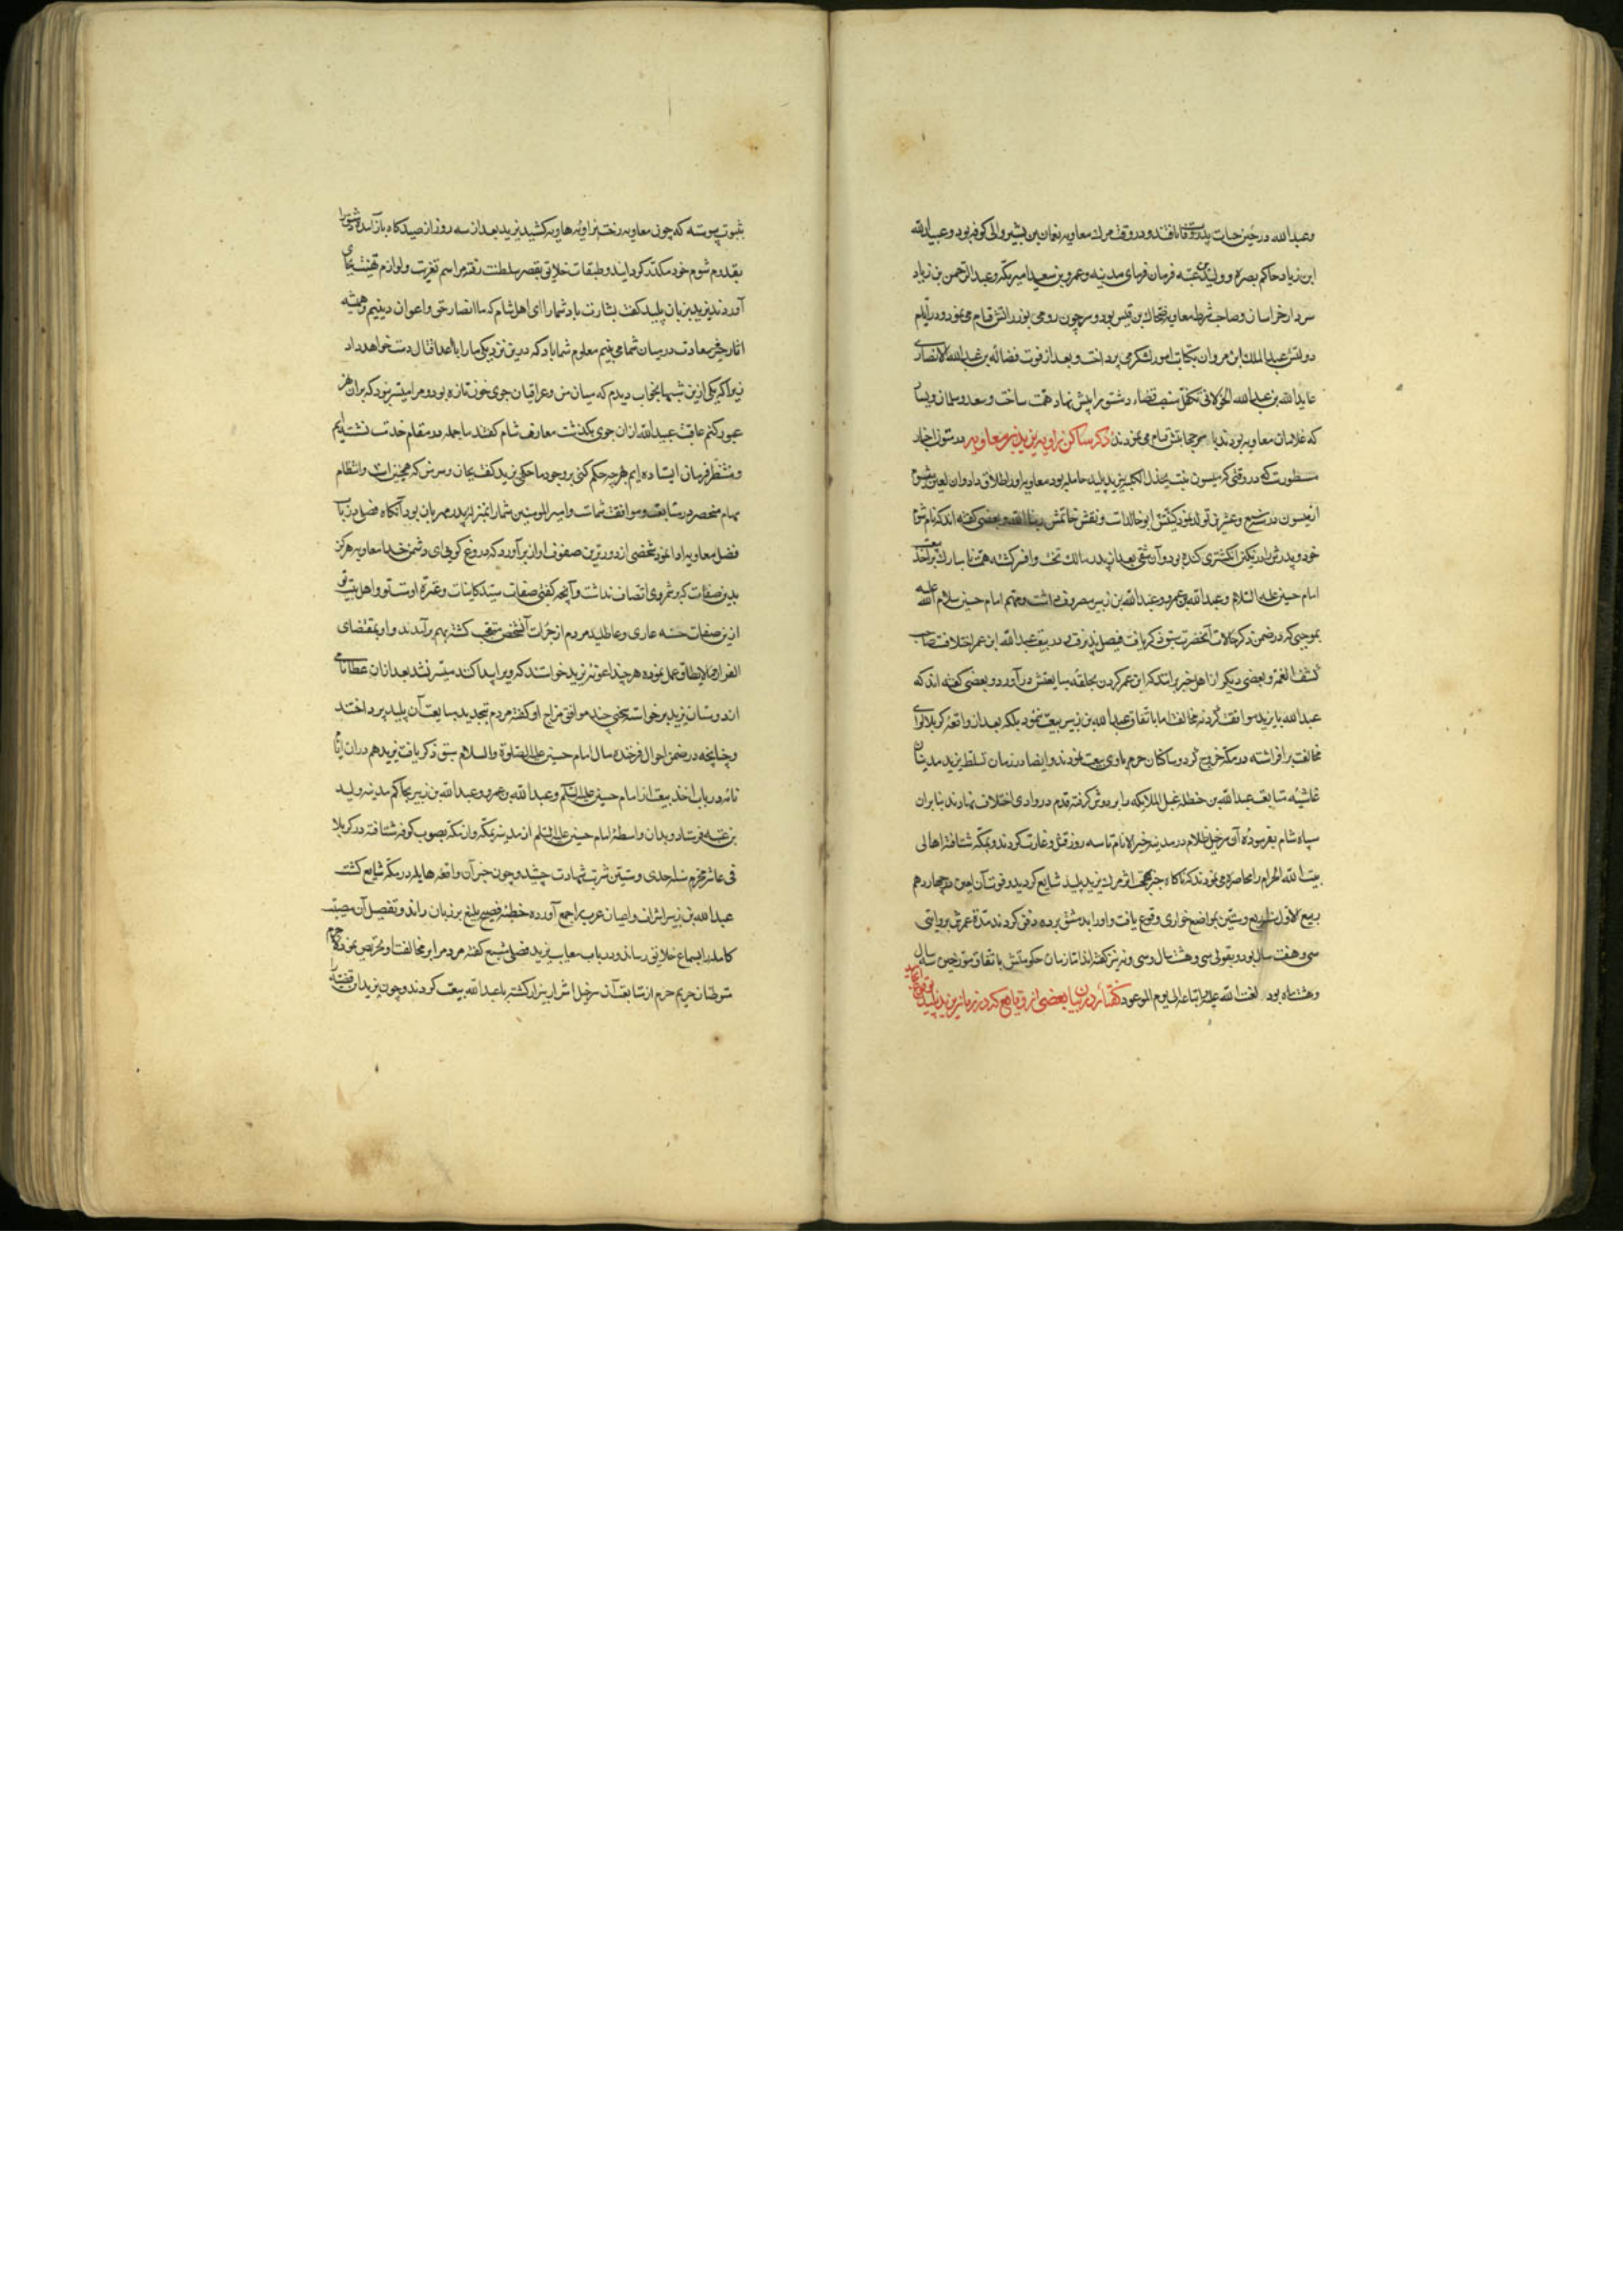 وعبدالله در حین حیات پدر وفات یافتند و در وقت مرک معاویه نعمان بن بشیر والی کوفه بود و عبیدالله
ابن زیاد حاکم بصره و ولید بن عتبه فرمان فرمای مدینه و عمرو بن سعید امیر مکه و عبدالرحمن بن زیاد
سردار خراسان و صاحب شرطه معاویه ضحاک بن قیس بود و سرجون رومی بوزراتش قیام می نمود و در ایام
دولتش عبدالملک ابن مروان بکتابت امور لشکر می پرداخت و بعد از فوت فضاله بن عبیدالله الانصاری
عایدالله بن عبدالله الخولانی تکفل منصب قضاء دمشق را پیش نهاد همت ساخت و سعد و سلمان و یسار
که غلامان معاویه بودند با مر حجابتش قیام می نمودند ذکر ساکن زاویه یزید بن معاویه در متون اخبار
مسطورست که در وقتی که میسون بنت بحدل الکلبیه بیزید پلید حامله بود معاویه او را طلاق داد و ان لعین مشوم
از میسون در سنه و عشرین تولد نمود کنیتش ابو خالداست و نقش خاتمش ربنا الله و بعضی گفته اند که نام شوم
خود و پدرش را در نکین انکشتری کنده بود و آن شقی بعد از پدر مالک تخت و افسر کشته همت نامبارک بر اخذ بیعت
امام حسین علیه السلام و عبدالله بن عمر و عبدالله بن زبیر مصروف داشت و مهم امام حسین سلام الله علیه
بموجبی که در ضمن ذکر حالات آنحضرت سبق ذکر یافت فیصل پذیرفت و در بیعت عبدالله ابن عمر اختلافست صاحب
کشف الغمه و بعضی دیکر از اهل خبر برانند که ابن عمر کردن بحلقه مبایعتش در آورد و بعضی کفته اند که
عبدالله با یزید موافقت کرد نه مخالفت اما باتفاق عبدالله بن زبیر بیعت ننمود بلکه بعد از واقعه کربلا لوای
مخالفت برافراشته در مکه خروج کرد و ساکنان حرم با وی بیعت نمودند و ایضا در زمان تسلط یزید مدینیان
غاشیه متابعت عبدالله بن حنظله غسیل الملایکه را بر دوش کرفته قدم در وادی اختلاف نهادند بنابران
سپاه شام بفرموده آن سرخیل ظلام در مدینه خیر الانام تا سه روز قتل و غارت کردند و بمکه شتافته اهالی
بیت الله الحرام را محاصره می نمودند که ناکاه خبر مرک یزید پلید شایع کردید و فوت آن لعین در چهاردهم
ربیع الاول اربع و ستین بمواضع حواری وقوع یافت و او را بدمشق برده دفن کردند مدة عمرش بروایتی
سی و هفت سال بود و بقولی سی و هشت سال و سی و نه نیز کفته اند اما زمان حکومتش باتفاق مورخین سه سال
و هشت ماه بود لعنت الله علیه و اتباعه الی یوم الموعود کفتار در بیان بعضی از وقایع که در زمان یزید پلید بوقوع انجامید
بثبوت پیوسته که چون معاویه رخت بزاویه هاویه کشید یزید بعد از سه روز از صیدکاه باز آمده دمشق را
بقدوم شوم خود مکدر کردانید و طبقات خلایق بقصر سلطنت رفته مراسم تعزیت و لوازم تهنیت بجای
آوردند یزید بزبان پلید کفت بشارت باد شما را ای اهل شام که ما انصار حق و اعوان دینیم و همیشه
اثار خیر و سعادت در میان شما می بینم معلوم شما باد که در این نزدیکی ما را با اعدا قتال دست خواهد داد
زیرا که یکی ازین شبها بخواب دیدم که میان من و عراقیان جوی خون تازه بود و مرا میسر نبود که بران نهر
عبور کنم عاقبت عبیدالله ازان جوی بکذشت معارف شام کفتند ما جمله در مقام خدمت نشسته ایم
و منتظر فرمان ایستاده ایم هرچه حکم کنی بر وجود ما حاکمی یزید کفت بجان و سر من که همچنین است و انتظام
مهام منحصر در متابعت و موافقت شماست و امیر المومنین شما را بمنزله پدر مهربان بود آنکاه فصلی در باب
فضل معاویه ادا نمود شخصی از دورترین صفوف اواز برآورد که دروغ کویی ای دشمن خدا معاویه هرکز
بدین صفات که بر شمردی اتصاف نداشت و آنچه کفتی صفات سید کاینات و عترة اوست و تو و اهل بیت تو
ازین صفات حسنه عاری و عاطلید مردم از جرات آنشخص متعجب کشته بهم برآمدند و او بمقتضای
الفرار مما لا یطاق عمل نموده هرچند اعوان یزید خواستند که ویرا پیدا کنند میسر نشد بعد ازان عطا نامی
از دوستان یزید برخواسته سخنی چند موافق مزاج او کفته مردم تجدید مبایعت آن پلید پرداختند
و چنانچه در ضمن احوال فرخنده مآل امام حسین علیه الصلوة والسلام سبق ذکر یافت یزید هم دران ایام
نامه در باب اخذ بیعت از امام حسین علیه السلم و عبدالله بن عمر و عبدالله بن زبیر بحاکم مدینه ولید
بن عتبه فرستاد و بدان واسطه امام حسین علیه السلم از مدینه بمکه و از مکه بصوب کوفه شتافته در کربلا
فی عاشر محرم سنه احدی و ستین شربت شهادت چشید و چون خبر آن واقعه هایله در مکه شایع کشت
عبدالله بن زبیر اشراف و اعیان عرب را جمع آورده خطبه فصیح بلیغ بر زبان راند و تفصیل آن مصیبت
کما هو را بسماع خلایق رسانید و در باب معایب یزید فصلی مشبع کفته مردم را بر مخالفت او تحریض نمود
متوطنان حریم حرم از متابعت آن سرخیل اشرار بیزار کشته با عبدالله بیعت کردند و چون یزید ان قضیه را